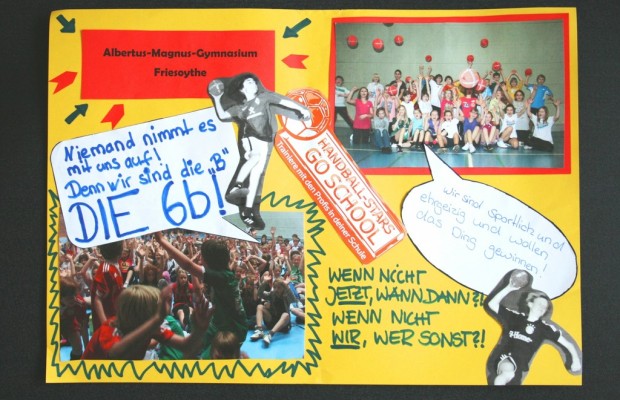 Albertus-Magnus-Gymnasium
Friesoythe
Niemand nimmt es
mit uns auf!
Denn wir sind die „B“
DIE 6b!
HANDBALL-STARS
GO SCHOOL
Trainiere mit den Profis in deiner Schule
Wir sind sportlich und
ehrgeizig und wollen
das Ding gewinnen!
WENN NICHT
JETZT, WANN DANN?!
WENN NICHT
WIR, WER SONST?!